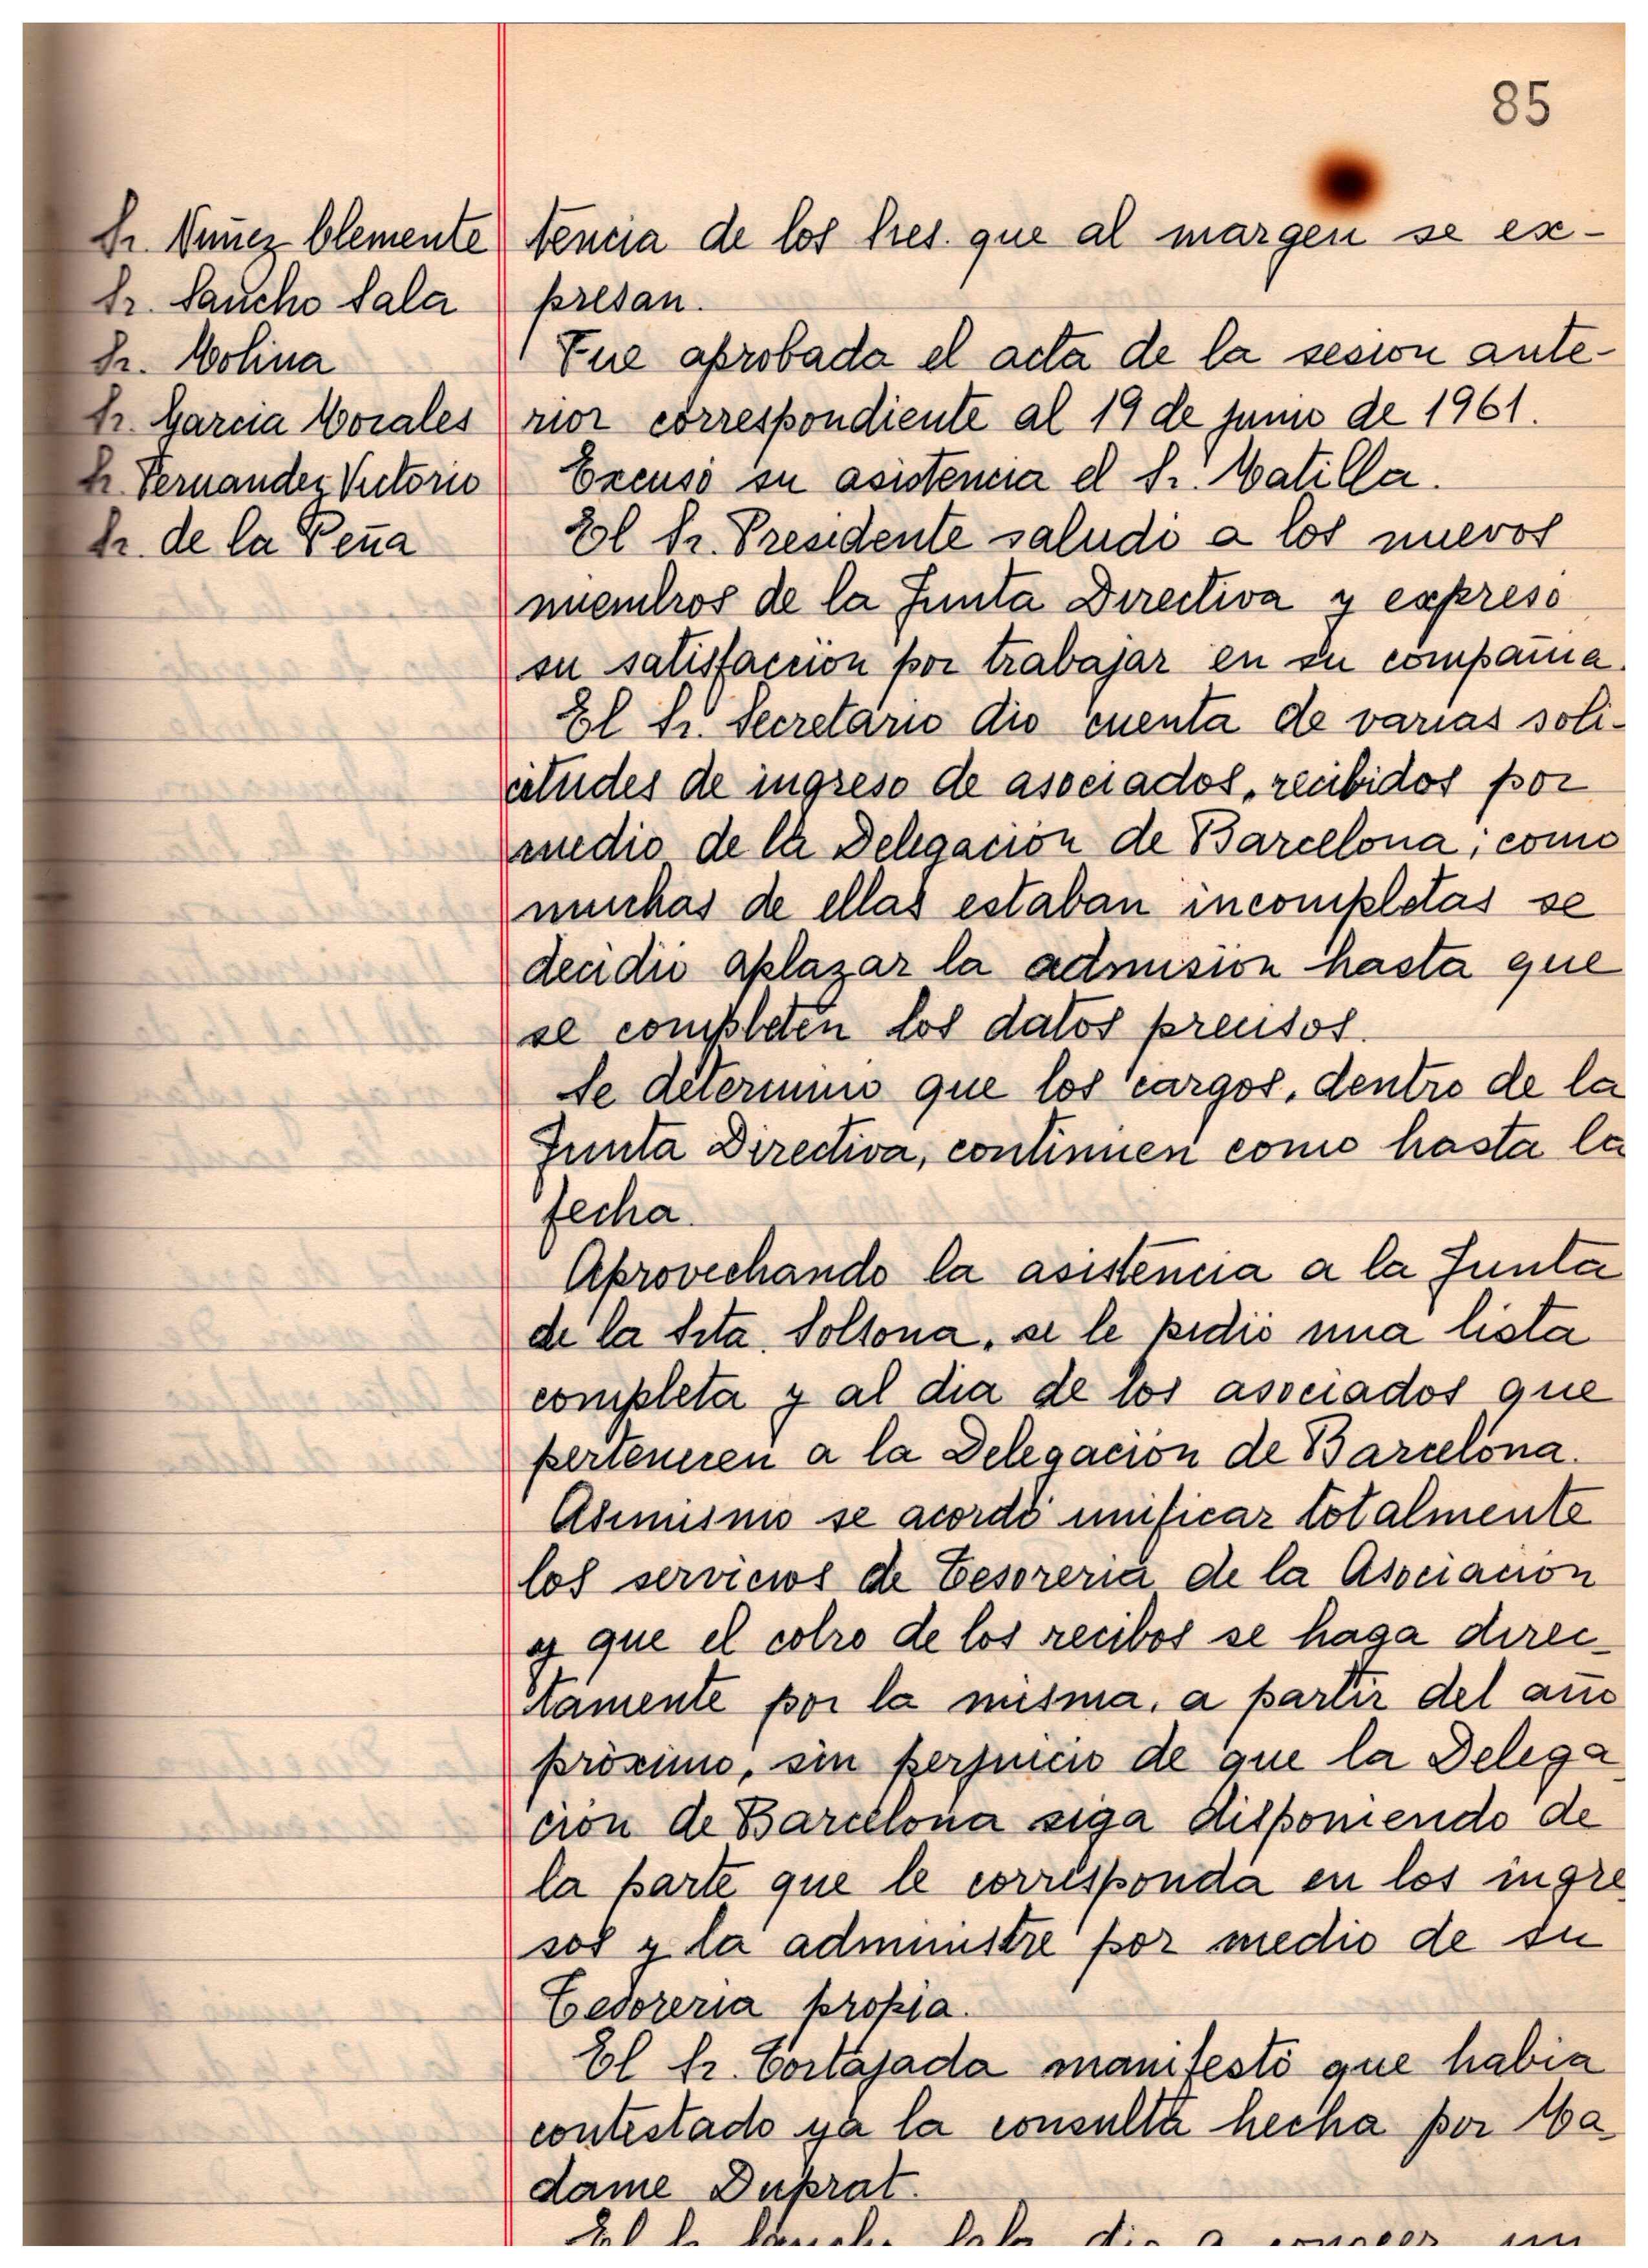 85
Sr. Nuñez Clemente
Sr. Sancho Sala
Sr. Molina
Sr. Garcia Morales
Sr. Fernandez Victorio
Sr. de la Peña
tencia de los Sres. que al margen se ex-
presan.
Fue aprobada el acta de la sesion ante-
rior correspondiente al 19 de junio de 1961.
Excusó su asistencia el Sr. Matilla.
El Sr. Presidente saludó a los nuevos
miembros de la Junta Directiva y expreso
su satisfaccion por trabajar en su compañia.
El Sr. Secretario dio cuenta de varias soli-
citudes de ingreso de asociados, recibidos por
medio de la Delegación de Barcelona; como
muchas de ellas estaban incompletas se
decidió aplazar la admision hasta que
se completen los datos precisos.
Se determino que los cargos, dentro de la
Junta Directiva, continuen como hasta la
fecha.
Aprovechando la asistencia a la Junta
de la Srta. Solsona, se le pidió una lista
completa y al dia de los asociados que
pertenecen a la Delegacion de Barcelona.
Asimismo se acordó unificar totalmente
los servicios de Tesoreria de la Asociacion
y que el cobro de los recibos se haga direc-
tamente por la misma, a partir del año
próximo, sin perjuicio de que la Delega
cion de Barcelona siga disponiendo de
la parte que le corresponda en los ingre
sos y la administre por medio de su
Tesoreria propia.
El Sr. Cortajada manifestó que habia
contestado ya la consulta hecha por Ma-
dame Duprat.
El Sr Sancho Sala dio a conocer un